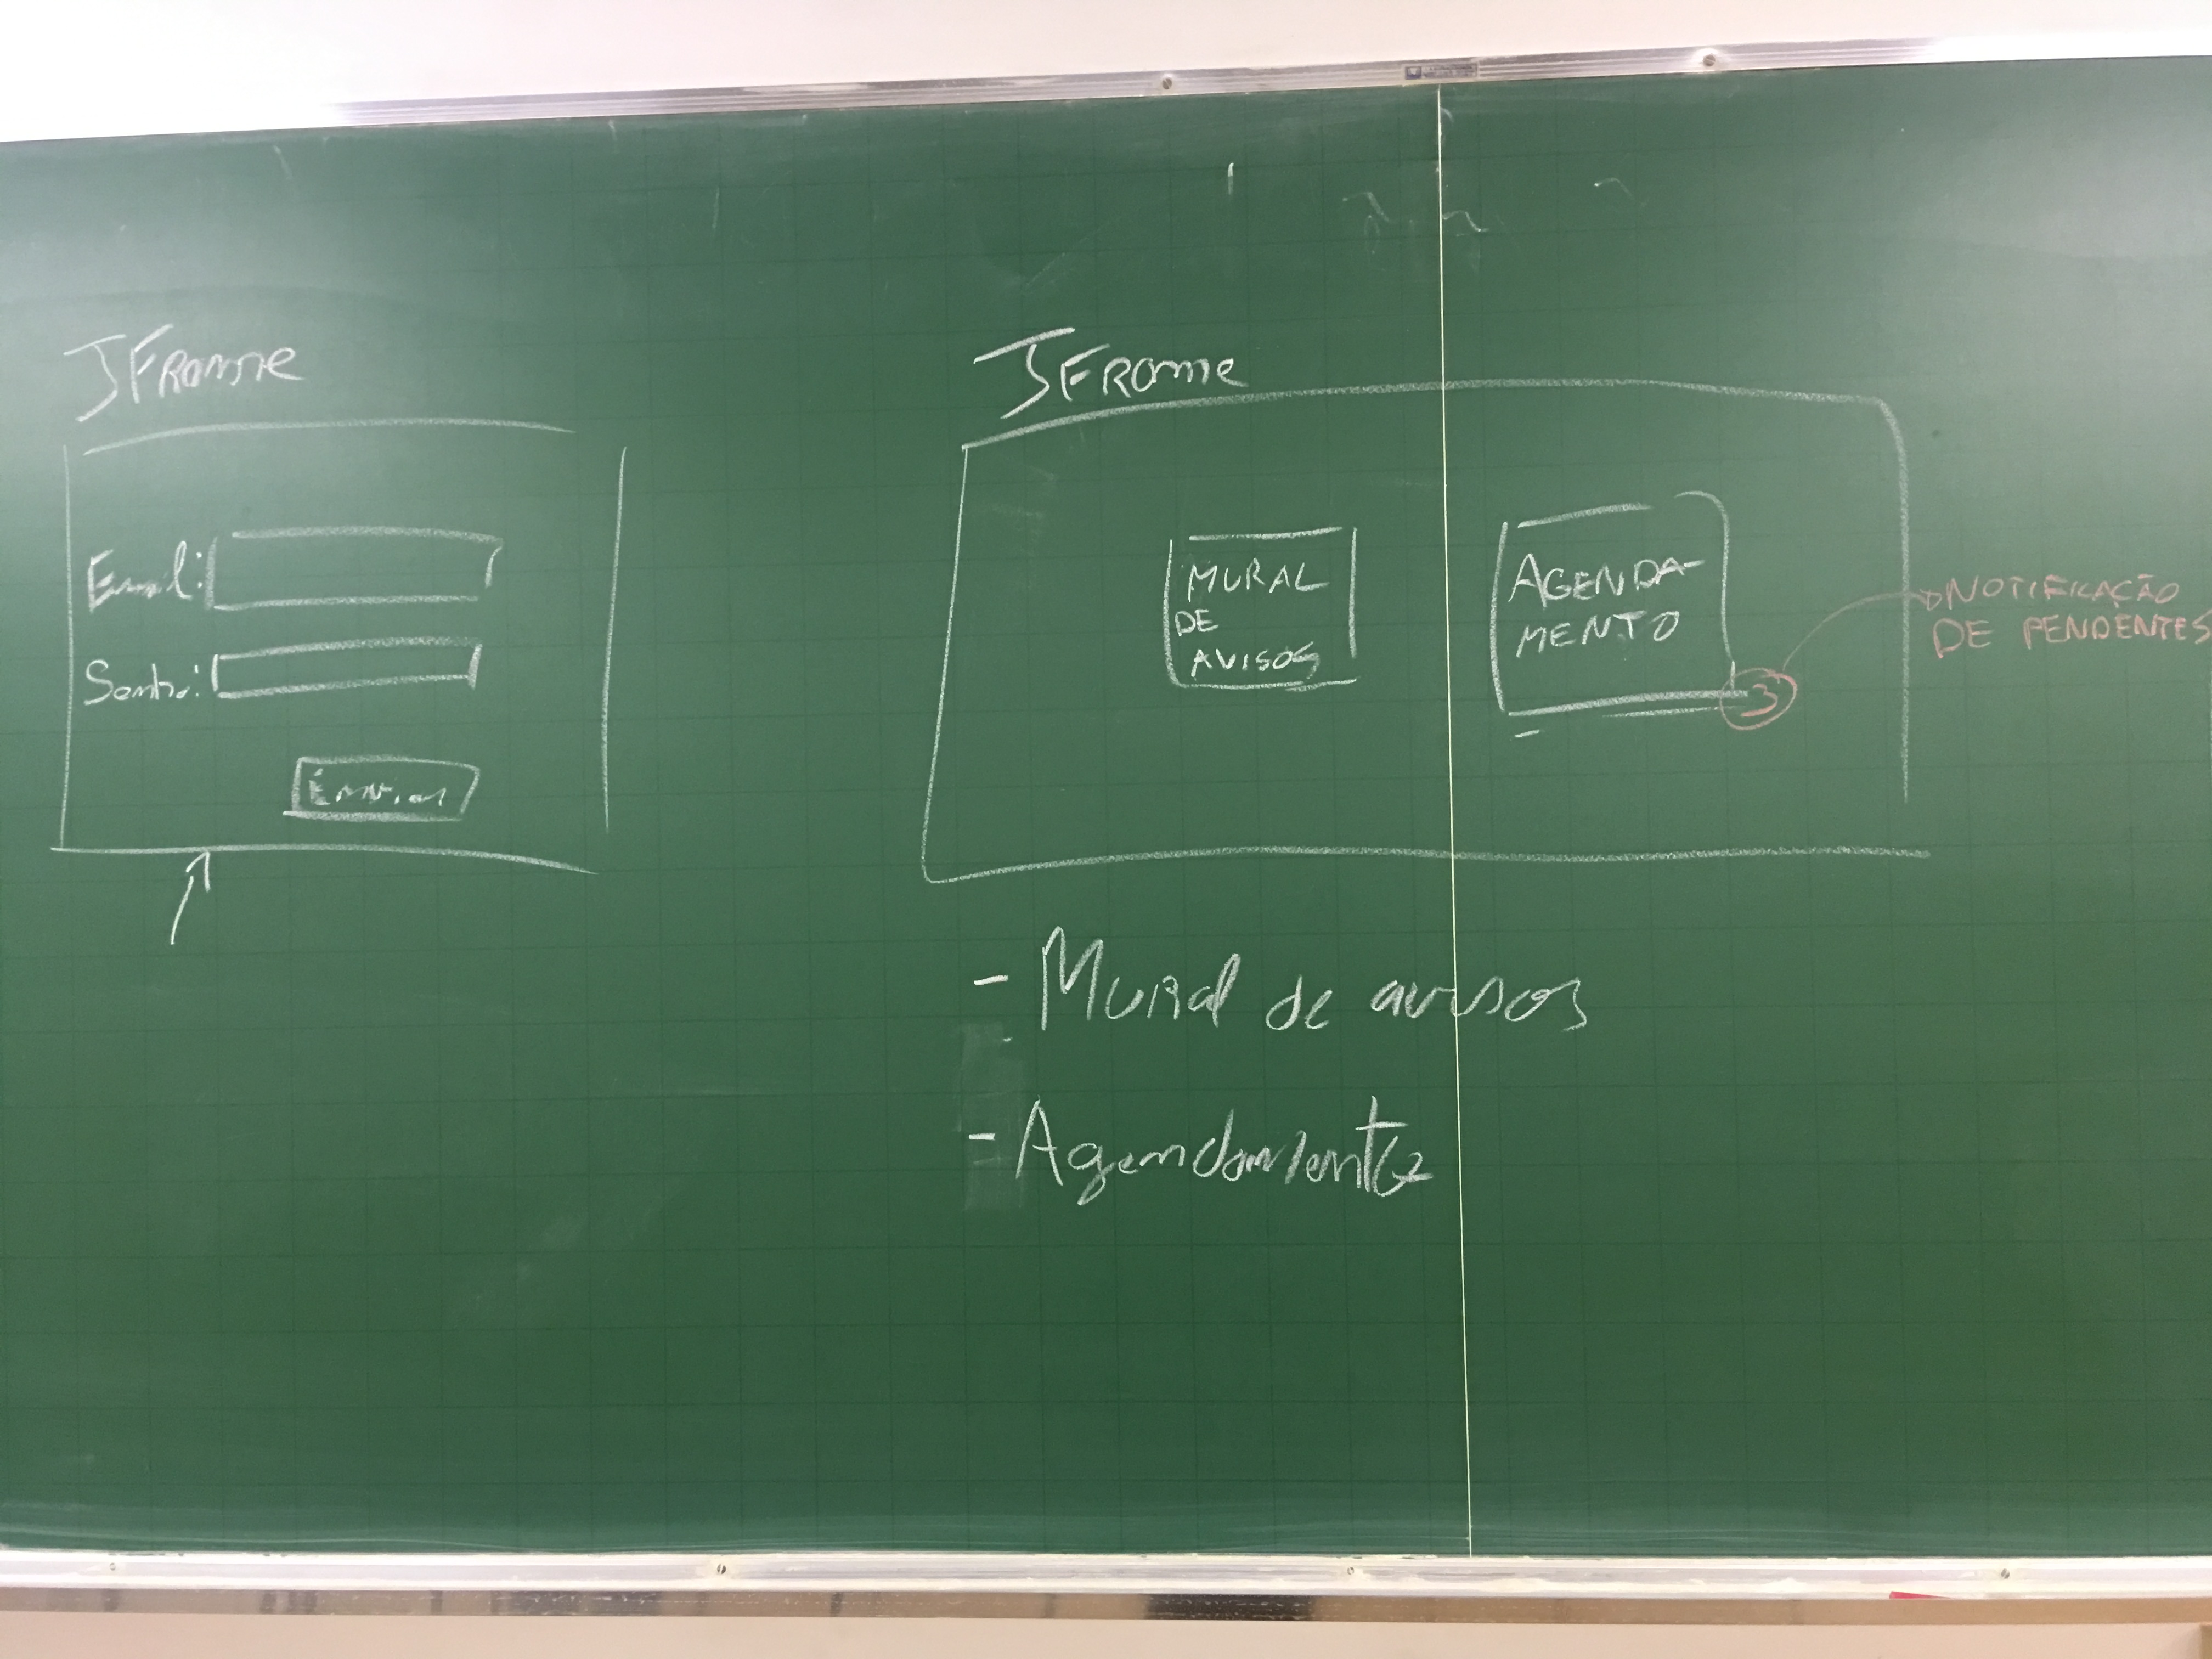 JFrame
Email:
Senha:
Enviar
JFrame
MURAL
DE
AVISOS
AGENDA-
MENTO
3
NOTIFICAÇÃO
DE PENDENTES
- Mural de avisos
- Agendamento